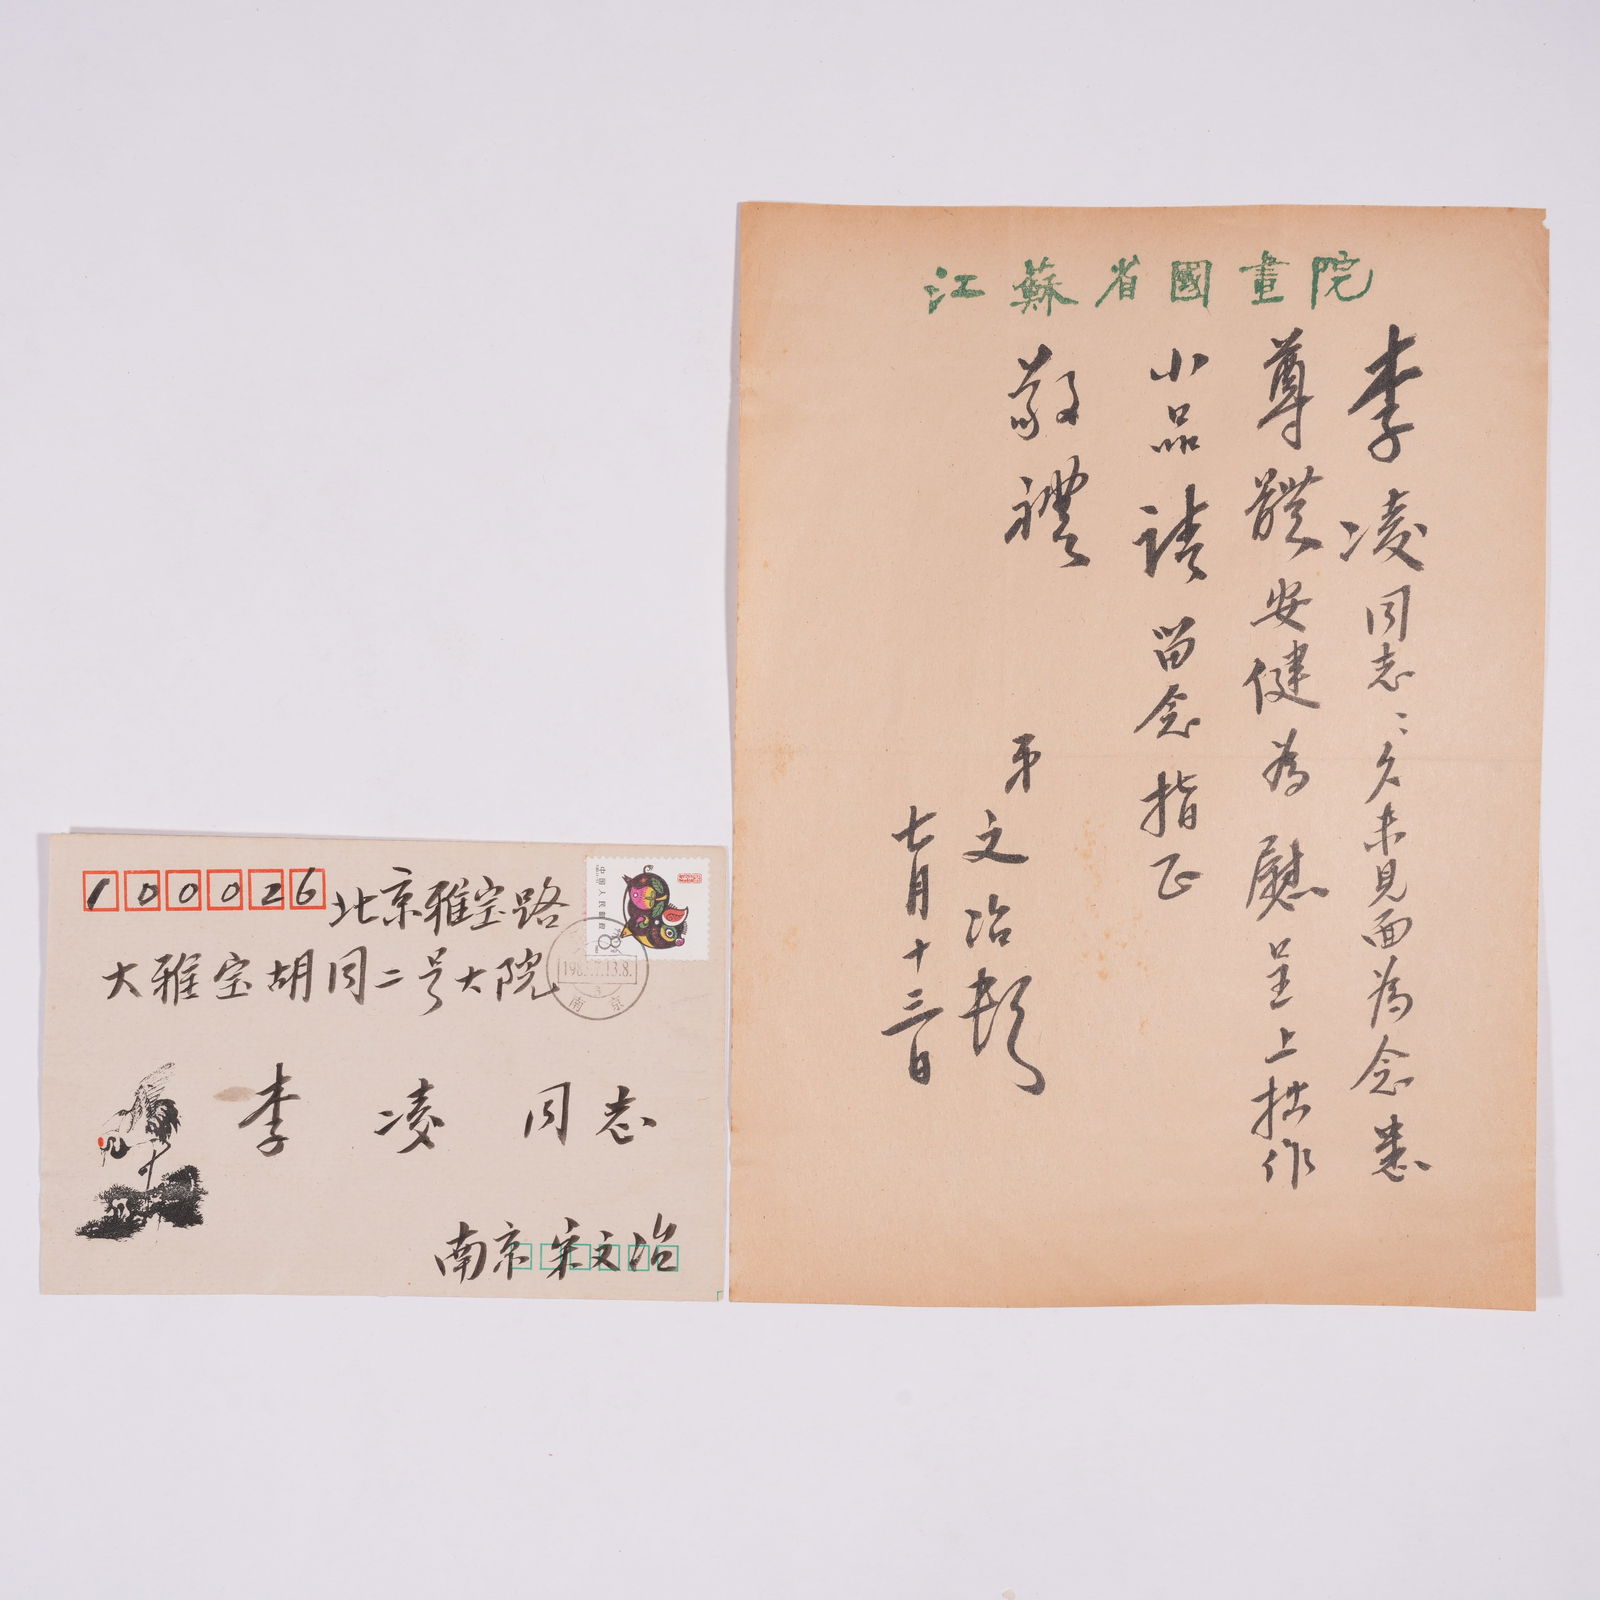 江蘇省國畫院
李凌同志：久未見面為念悉
尊體安健為慰呈上拙作
小品請留念指正
敬禮
弟文治頓
七月十三日
100026
北京雅宝路
大雅宝胡同二号大院
李凌同志
南京宋文治
中国人民邮政
8
13.8.
南京